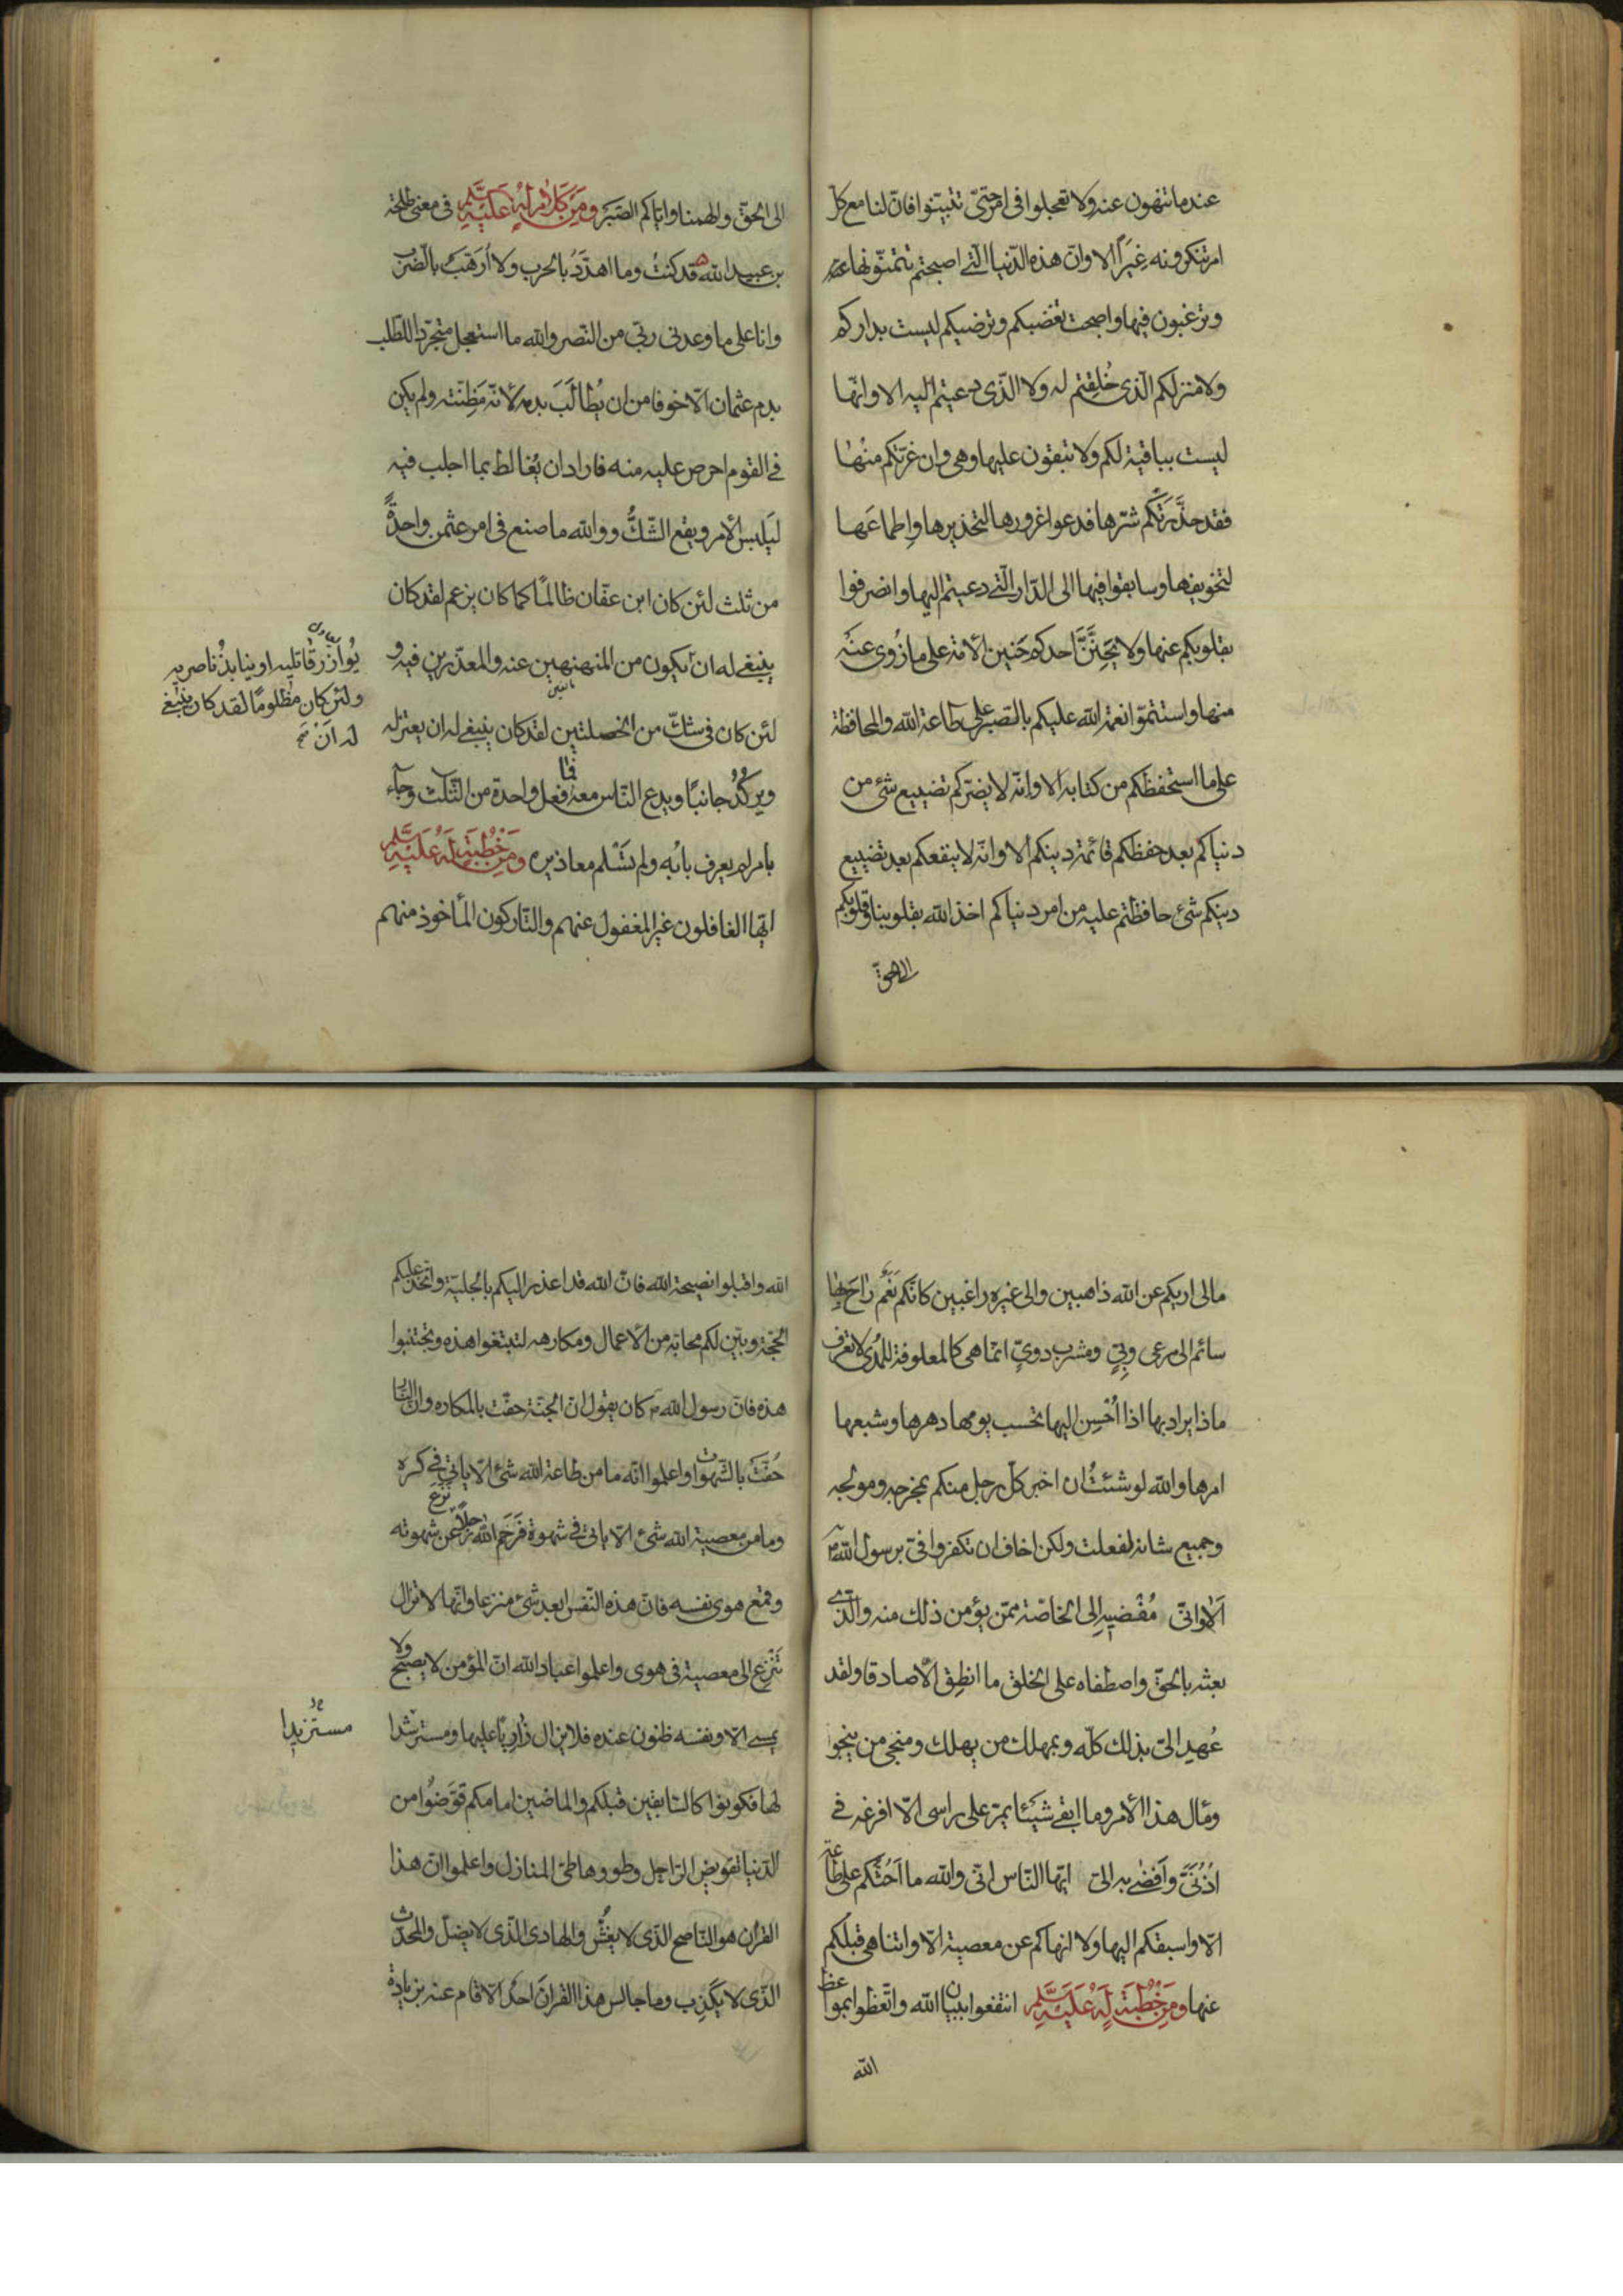 عند ما تنهون عنه ولا تعجلوا فى امر حتىّ تتبيّنوا فانّ لنا مع كلّ
امر تنكرونه غِيَرًا الا وان هذه الدّنيا الّتى اصبحتم تتمنّونها
وترغبون فيها واصبحت تغضبكم وترضيكم ليست بداركم
ولا منزلكم الّذى خُلِقتم له ولا الّذى دعيتم اليه الا وانّها
ليست بباقية لكم ولا تبقون عليها وهى وان غرّتكم منها
فقد حذَّرَتكم شرّها فدعوا غرورها لتحذيرها وإطماعَها
لتخويفها وسابقوا فيها الى الدّار الّتى دعيتم اليها وانصرفوا
بقلوبكم عنها ولا يَحِنَّنَّ احدكم حَنين الأمة على ما زُوى عنْه
منها واستتمّوا نعمة الله عليكم بالصّبر على طاعة الله والمحافظة
على ما استحفظكم من كتابه الا وانّه لا يضرّكم تضييع شئ من
دنياكم بعد حفظكم قائمة دينكم الا وانّه لا ينفعكم بعد تضييع
دينكم شئ حافظتم عليه من امر دنياكم اخذ الله بقلوبنا وقلوبكم
الى الحقّ
الى الحقّ والهمنا واياكم الصّبَر ومِنْ كَلَامٍ لَهُ عَلَيْهِ السَّلَم فى معنى طلحة
بن عبيد الله قد كنتُ وما اهدَّدُ بالحرب ولا أُرَهَّبُ بالضّرب
وانا على ما وعدنى ربّى من النّصر والله ما استعجل متجرّدا للطّلب
بدم عثمان الّا خوفا من ان يُطالَبَ بدمه لأنّه مَظِنّته ولم يكن
فى القوم احرص عليه منه فاراد ان يُغالط بما اجلب فيه
ليَلبس الأمر ويقع الشّكُّ ووالله ما صنع فى امر عثمن واحدةً
من ثلث لئن كان ابن عفّان ظالمًا كما كان يزعم لقد كان
ينبغى له ان يكون من المنهنهين عنه والمعذّرين فيه و
لئن كان فى شكّ من الخصلتين لقد كان ينبغى له ان يعتزله
ويركُدُ جانبًا ويدع النّاس معه فما فعل واحدة من الثّلث وجآء
بامر لم يعرف بابُه ولم تَسْلم معاذيره ومِنْ خُطْبَةٍ لَهُ عَلَيْهِ السَّلَم
ايّها الغافلون غير المغفول عنهم والتّاركون المأخوذ منهم
يُوازر قاتليه او ينابذُ ناصريه
ولئن كان مظلومًا لقد كان ينبغى
له ان
مالى اريكم عن الله ذاهبين والى غيره راغبين كانّكم نَعَم راحَ بها
سائم الى مرعى وبِىّ ومشرب دوىٍّ انّما هى كالمعلوفة للمُدى لا تعرف
ما ذا يراد بها اذا أُحْسِن اليها تحسب يومها دهرها وشبعها
امرها والله لو شئتُ ان اخبر كلّ رجل منكم بمخرجه ومولجه
وجميع شانه لفعلت ولكن اخاف ان تكفروا فىّ برسول الله
اَلا وانّى مُفْضيه الى الخاصّة ممّن يؤمن ذلك منه والّذى
بعثه بالحقّ واصطفاه على الخلق ما انطِق الّا صادقا ولقد
عُهِد الىّ بذلك كلّه وبمهلك من يهلك ومنجى من ينجوا
ومآل هذا الأمر وما ابقى شيَئا يمرّ على راسى الّا افرغه فى
اُذُنَىَّ وأفضى به الىّ ايّها النّاس انّى والله ما اَحُثّكم على طاعة
الّا واسبقكم اليها ولا انهاكم عن معصية الّا واتناهى قبلكم
عنها ومِنْ خُطْبَةٍ لَهُ عَلَيْهِ السَّلَم انتفعوا ببيان الله واتّعظوا بمواعظ
الله
الله واقبلوا نصيحة الله فانّ الله قد اعذر اليكم بالجليّة واتّخذ عليكم
الحجّة وبيّن لكم محابّه من الأعمال ومكارهه لتبتغوا هذه وتجتنبوا
هذه فانّ رسول الله كان يقول انّ الجنّة حفّت بالمكاره وانّ النّار
حُفّتَ بالشّهوات واعلموا انّه ما من طاعة الله شئ الّا ياتى فى كره
وما من معصية الله شئ الّا ياتى فى شهوة فَرَحِمَ الله رجلًا نزع عن شهوته
وقمع هوى نفسه فانّ هذه النّفس ابعد شئ منزعا وانّها لا تزال
تَنْزِع الى معصية فى هوى واعلموا عباد الله انّ المؤمن لا يصبح ولا
يمسى الّا ونفسه ظنون عنده فلا يزال زارِيًا عليها ومسترشدا
لها فكونوا كالسّابقين قبلكم والماضين امامكم قوّضُوا من
الدّنيا تقويض الرّاحل وطووها طىّ المنازل واعلموا انّ هذا
القران هو النّاصح الّذى لا يغُشّ والهادى الّذى لا يضلّ والمحدّث
الّذى لا يكْذِب وما جالس هذا القرانَ احدٌ الّا قام عنه بزيادة
مستزيدا